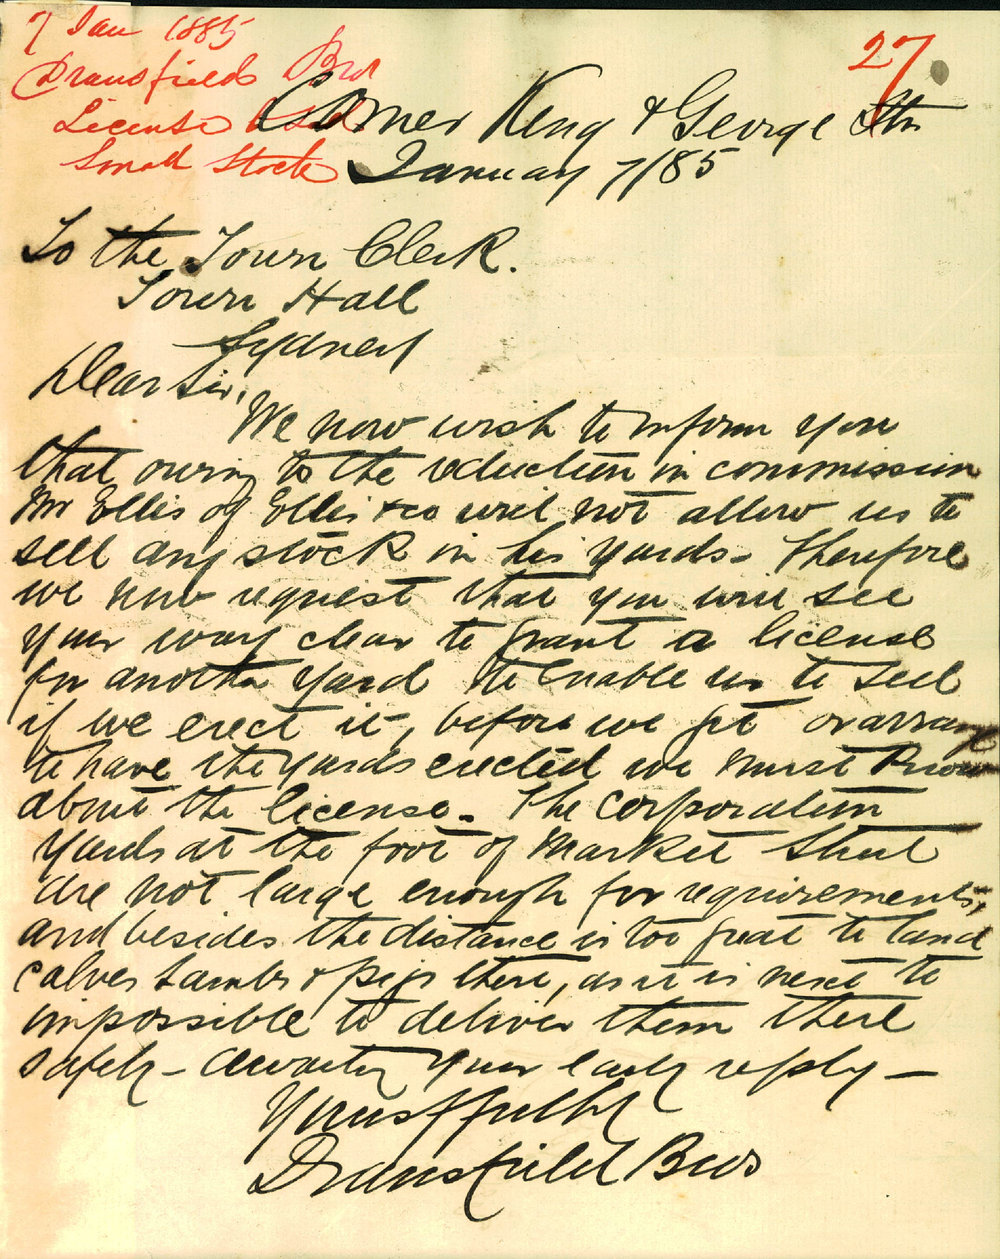 7 Jan 1885
Dransfield Bros
License
Small Stock
27
Corner King & George Sts
January 7/85
To the Town Clerk.
Town Hall
Sydney
Dear Sir,
We now wish to inform you
that owing to the reduction in commission
Mr Ellis of Ellis & co will not allow us to
sell any stock in his yards. Therefore
we now request that you will see
your way clear to grant a license
for another yard to enable us to sell
if we erect it, before we get or arrange
to have the yards erected we must know
about the license. The corporation
yards at the foot of Market Street
are not large enough for requirements,
and besides the distance is too great to land
calves Lambs & pigs there, as it is next to
impossible to deliver them there
safely - awaiting your early reply -
Yours ffully
Dransfield Bros